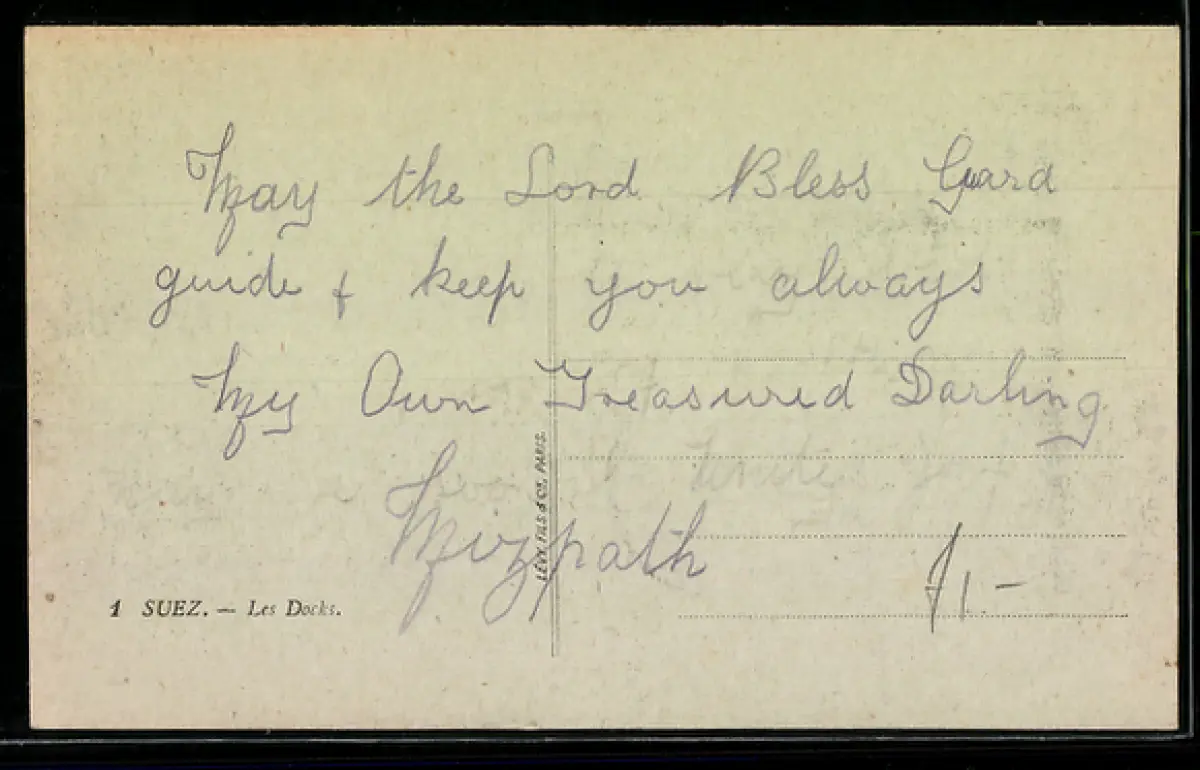 May the Lord Bless Gard
guide & keep you always
My Own Treasured Darling
Mizpath
LÉVY, FILS & Cie, PARIS.
1 SUEZ. — Les Docks.